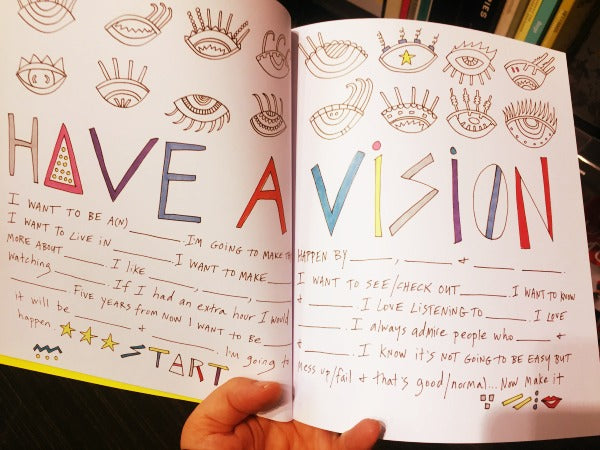 HAVE A VISION
I WANT TO BE A(N) ______. I'M GOING TO MAKE TH HAPPEN BY ____, ____ & ____ ____.
I WANT TO LIVE IN ______. I WANT TO MAKE ____. I WANT TO SEE/CHECK OUT ______. I WANT TO KNOW
MORE ABOUT ______. I LIKE ____, ____, ____ & ____. I LOVE LISTENING TO ______. I LOVE
watching ____. If I had an extra hour I would ____. I always admire people who ____ &
______. Five years from now I want to be ____ & ____. I KNOW IT'S NOT GOING TO BE EASY BUT
it will be ______ & ______. I'm going to mess up/fail & that's good/normal... Now make it
happen. START